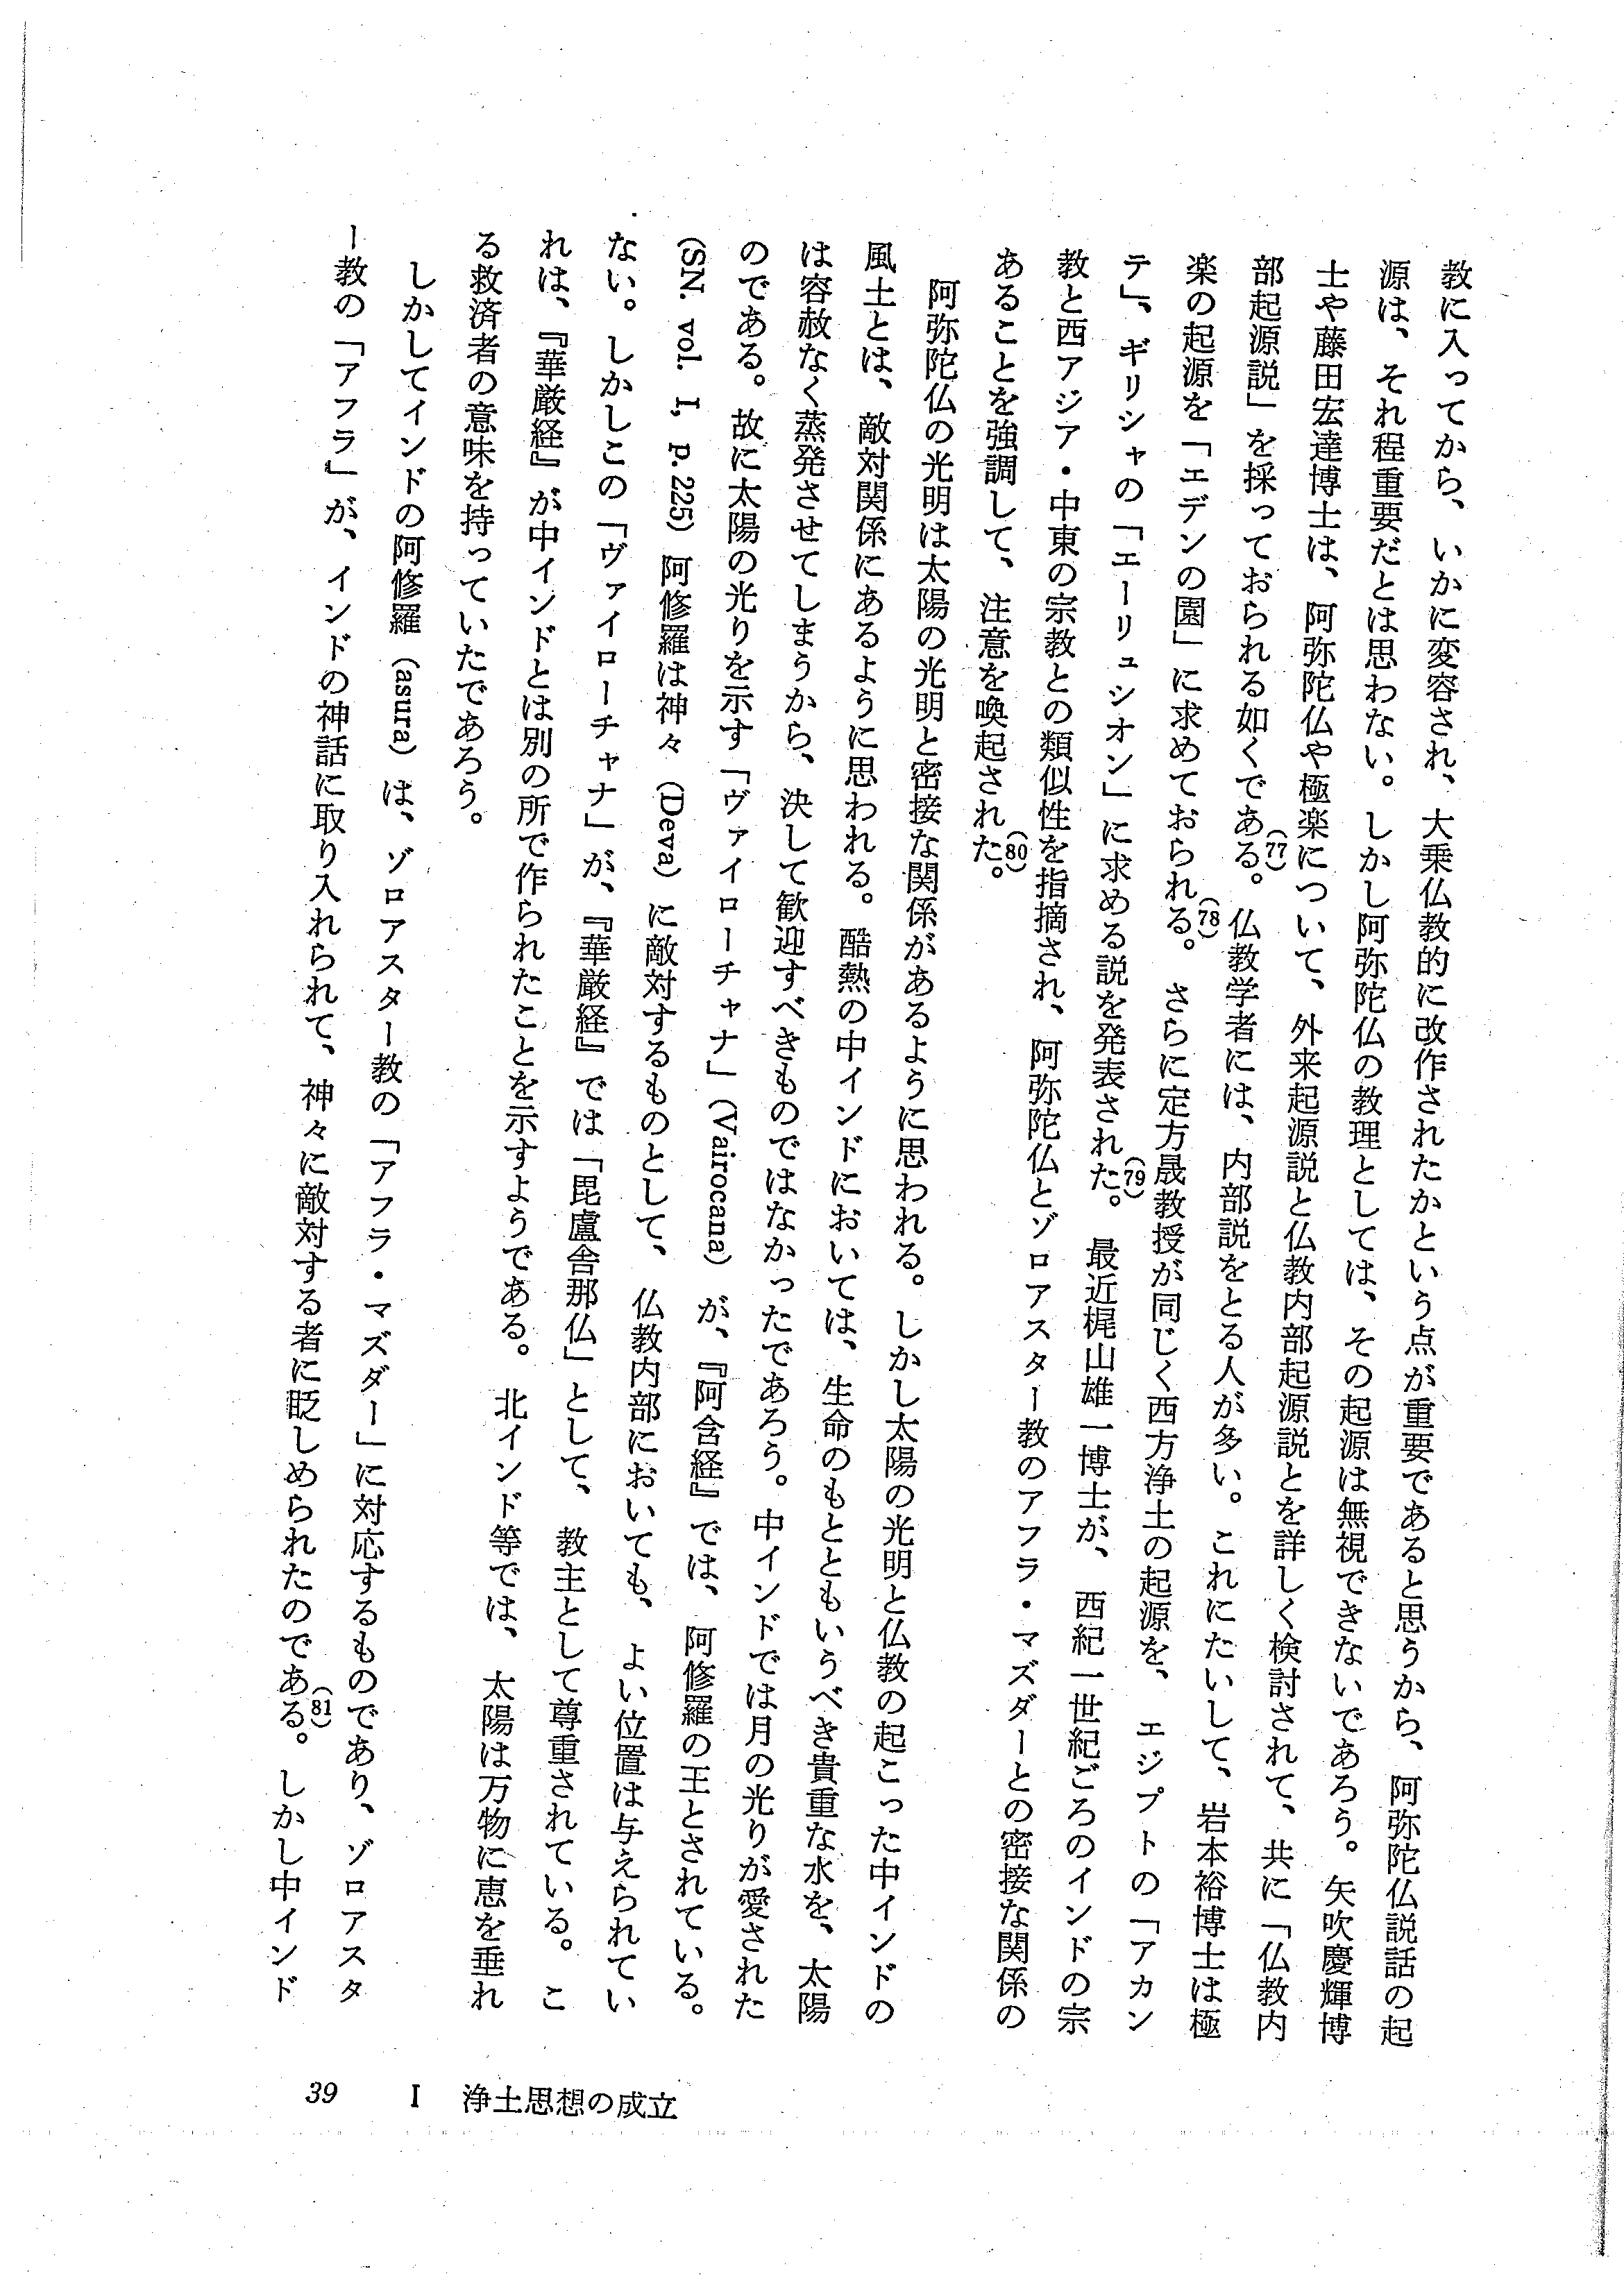 教に入ってから、いかに変容され、大乗仏教的に改作されたかという点が重要であると思うから、阿弥陀仏説話の起
源は、それ程重要だとは思わない。しかし阿弥陀仏の教理としては、その起源は無視できないであろう。矢吹慶輝博
士や藤田宏達博士は、阿弥陀仏や極楽について、外来起源説と仏教内部起源説とを詳しく検討されて、共に「仏教内
部起源説」を採っておられる如くである。(77)仏教学者には、内部説をとる人が多い。これにたいして、岩本裕博士は極
楽の起源を「エデンの園」に求めておられる。(78)さらに定方晟教授が同じく西方浄土の起源を、エジプトの「アカン
テ」、ギリシャの「エーリュシオン」に求める説を発表された。(79)最近梶山雄一博士が、西紀一世紀ごろのインドの宗
教と西アジア・中東の宗教との類似性を指摘され、阿弥陀仏とゾロアスター教のアフラ・マズダーとの密接な関係の
あることを強調して、注意を喚起された。(80)
阿弥陀仏の光明は太陽の光明と密接な関係があるように思われる。しかし太陽の光明と仏教の起こった中インドの
風土とは、敵対関係にあるように思われる。酷熱の中インドにおいては、生命のもとともいうべき貴重な水を、太陽
は容赦なく蒸発させてしまうから、決して歓迎すべきものではなかったであろう。中インドでは月の光りが愛された
のである。故に太陽の光りを示す「ヴァイローチャナ」(Vairocana) が、『阿含経』では、阿修羅の王とされている。
(SN. vol. I, p. 225) 阿修羅は神々 (Deva) に敵対するものとして、仏教内部においても、よい位置は与えられてい
ない。しかしこの「ヴァイローチャナ」が、『華厳経』では「毘盧舎那仏」として、教主として尊重されている。こ
れは、『華厳経』が中インドとは別の所で作られたことを示すようである。北インド等では、太陽は万物に恵を垂れ
る救済者の意味を持っていたであろう。
しかしてインドの阿修羅 (asura) は、ゾロアスター教の「アフラ・マズダー」に対応するものであり、ゾロアスタ
ー教の「アフラ」が、インドの神話に取り入れられて、神々に敵対する者に貶しめられたのである。(81)しかし中インド
39 I 浄土思想の成立